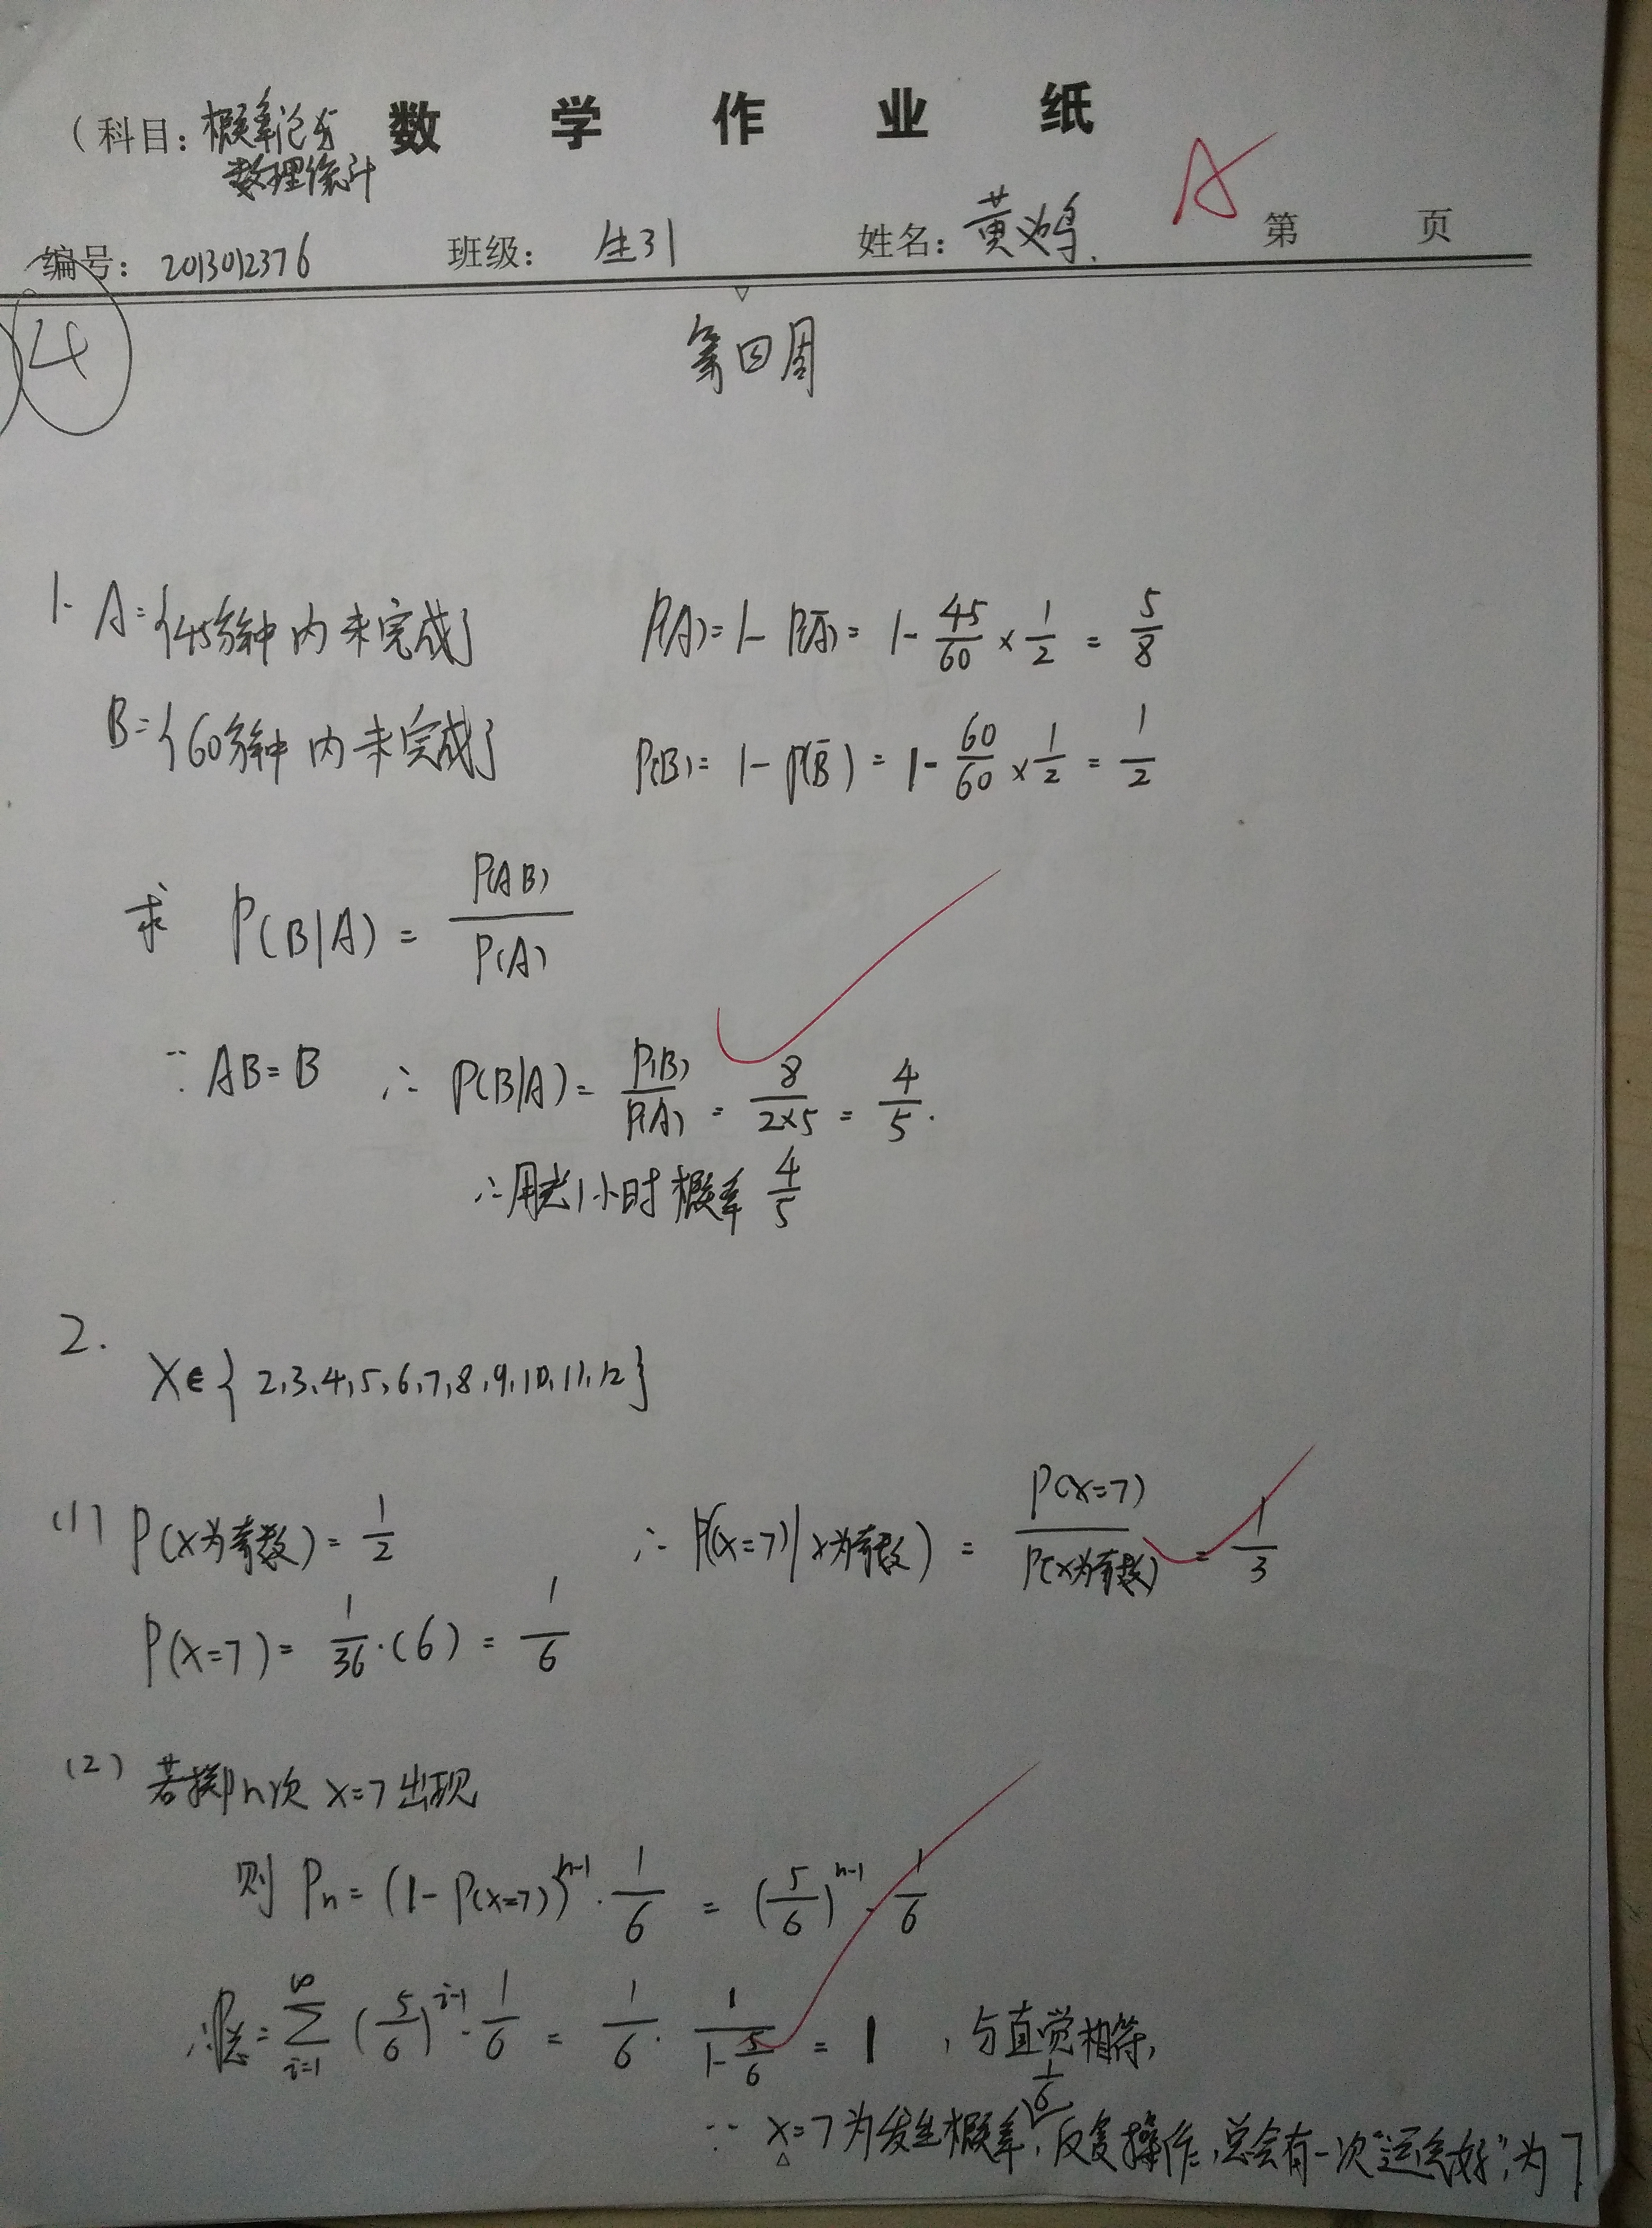 (科目: 概率论与 数学作业纸
数理统计
A
编号: 2013012376 班级: 生31 姓名: 黄鸿 第 页
4
第四周
1. A={45分钟内未完成} P(A)=1-P(Ā)=1-45/60×1/2=5/8
B={60分钟内未完成} P(B)=1-P(B̄)=1-60/60×1/2=1/2
求 P(B|A)=P(AB)/P(A)
∵ AB=B ∴ P(B|A)=P(B)/P(A)=8/(2×5)=4/5.
∴用去1小时概率 4/5
2.
X∈{2,3,4,5,6,7,8,9,10,11,12}
(1) P(X为奇数)=1/2 ∴ P(X=7|X为奇数)=P(X=7)/P(X为奇数)=1/3
P(X=7)=1/36·(6)=1/6
(2) 若掷n次 X=7出现
则 Pn=(1-P(X=7))^(n-1)·1/6=(5/6)^(n-1)·1/6
∴P总=∑_(i=1)^∞ (5/6)^(i-1)·1/6=1/6·1/(1-5/6)=1,与直觉相符,
∵ X=7为发生概率1/6,反复操作,总会有一次"运气好",为7